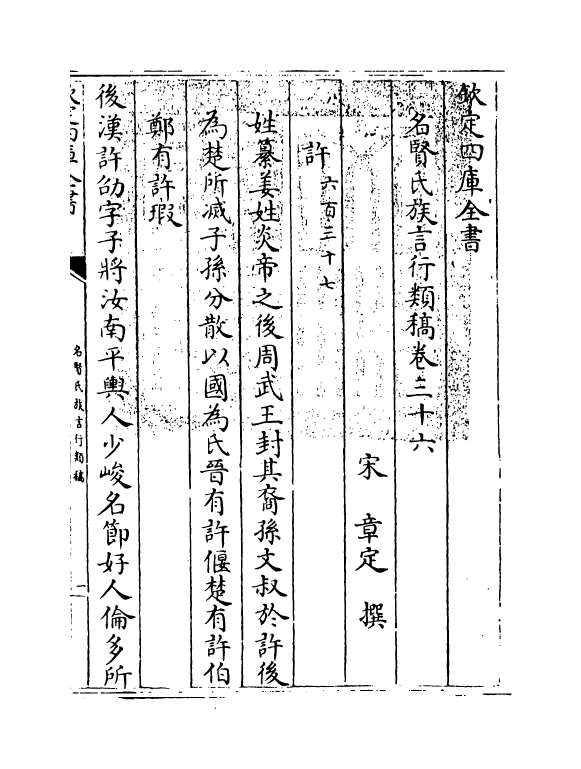 欽定四庫全書
名賢氏族言行類稿卷三十六
宋 章定 撰
許六百三十七
姓纂姜姓炎帝之後周武王封其裔孫文叔於許後
為楚所滅子孫分散以國為氏晉有許偃楚有許伯
鄭有許瑕
後漢許劭字子將汝南平輿人少峻名節好人倫多所
欽定四庫全書
名賢氏族言行類稿
一